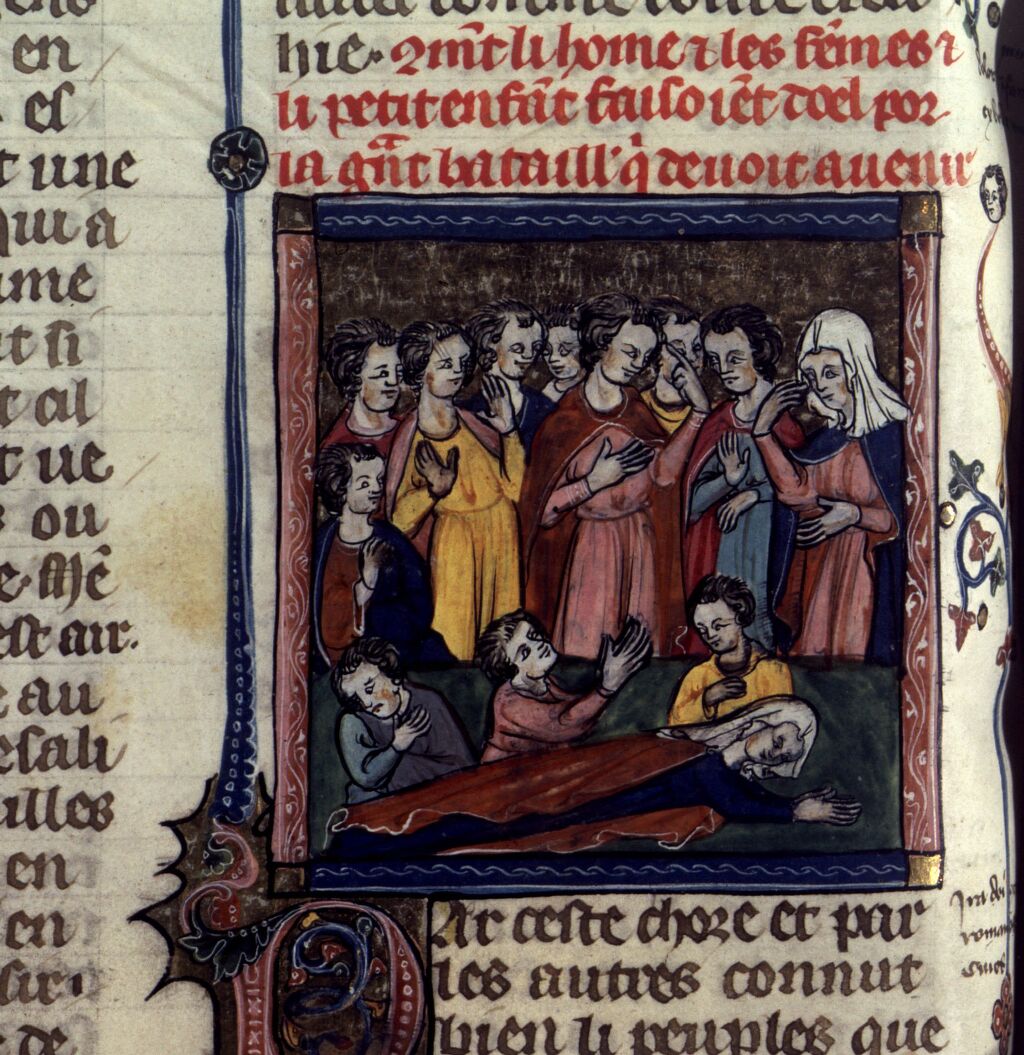 en
es
t une
qui a
ume
nt si
t al
t ue
s ou
e. Mē
est air.
e au
esali
illes
en
en
sir.
de
hie. ⁊ mēt li home ⁊ les fēmes ⁊
li petit enfāt faisoiēt doel por
la gāt bataill' q̄ deuoit auenir
Par ceste choze et par
les autres connut
bien li peuples que